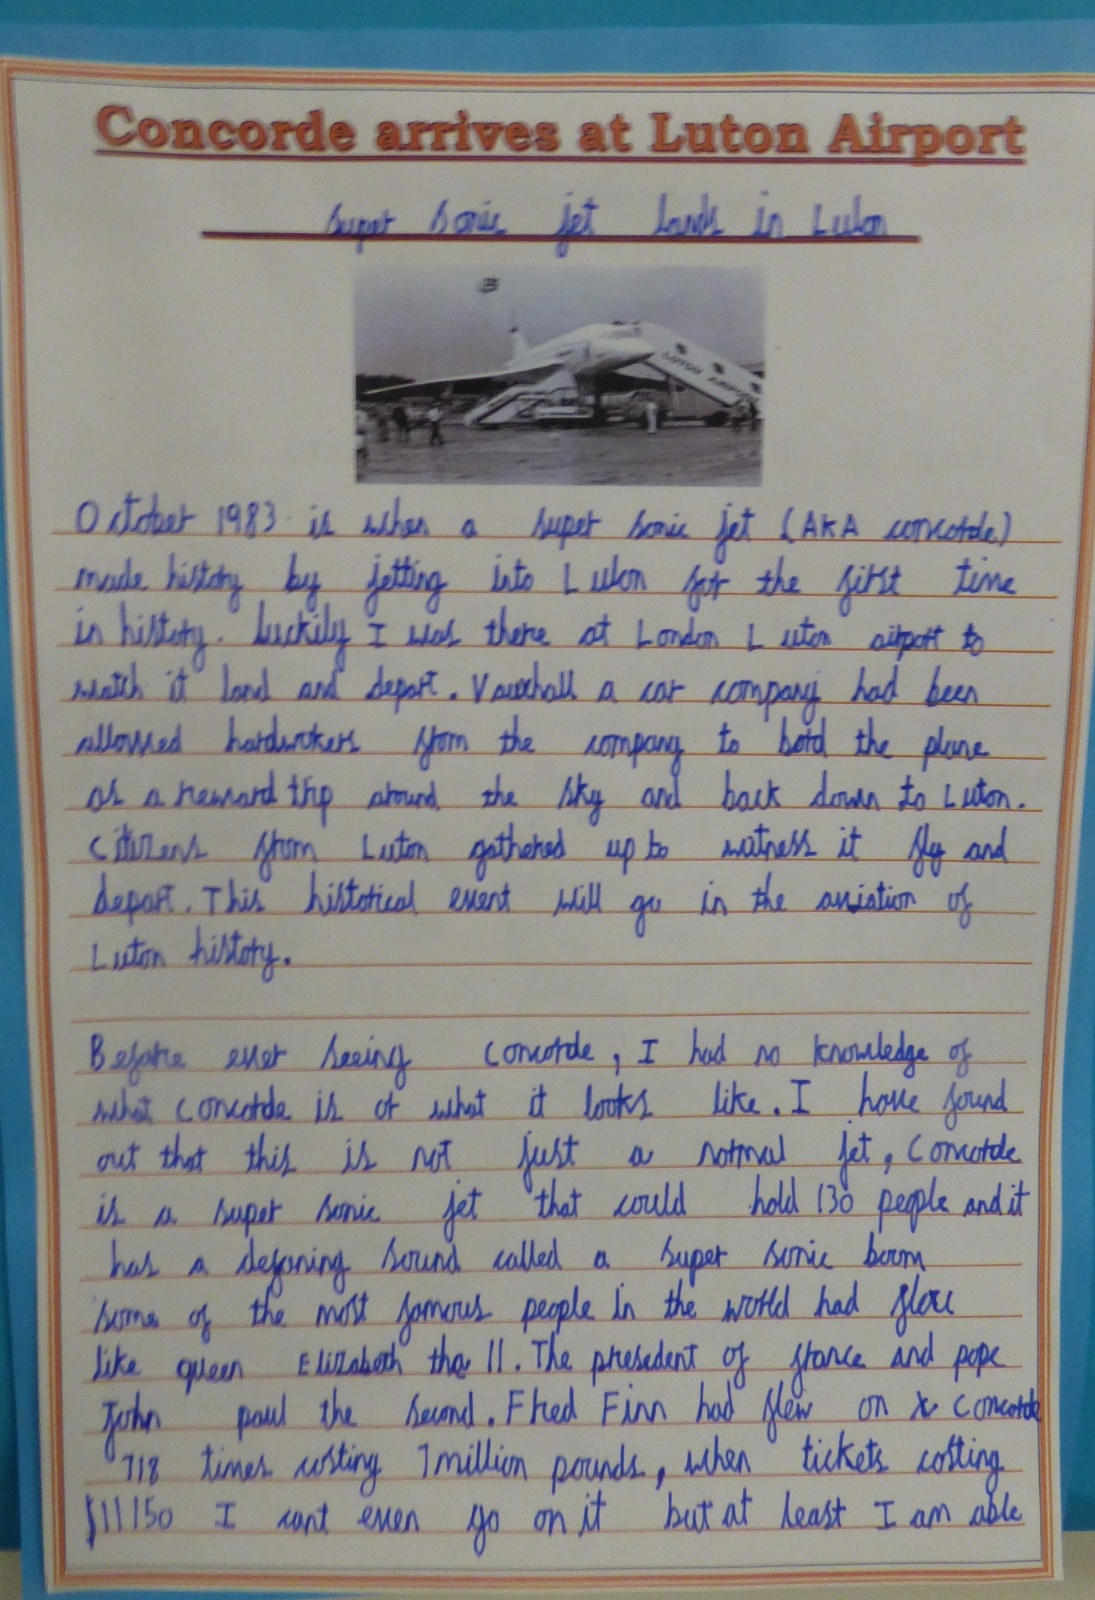 Concorde arrives at Luton Airport
super sonic jet lands in Luton
LUTON AIRPORT
October 1983 is when a super sonic jet (AKA concorde)
made history by jetting into Luton for the first time
in history. Luckily I was there at London Luton airport to
watch it land and depart. Vauxhall a car company had been
allowed hardwokers from the company to bord the plane
as a reward trip around the sky and back down to Luton.
Citizens from Luton gathered up to witness it fly and
depart. This historical event will go in the aviation of
Luton history.
Before ever seeing Concorde, I had no knowledge of
what Concorde is or what it looks like. I have found
out that this is not just a normal jet, Concorde
is a super sonic jet that could hold 130 people and it
has a defaning sound called a super sonic boom
some of the most famous people in the world had flew
like queen Elizabeth the II. The presedent of france and pope
John paul the second. Fred Finn had flew on Concorde
718 times costing 7million pounds, when tickets costing
$11150 I cant even go on it but at least I am able